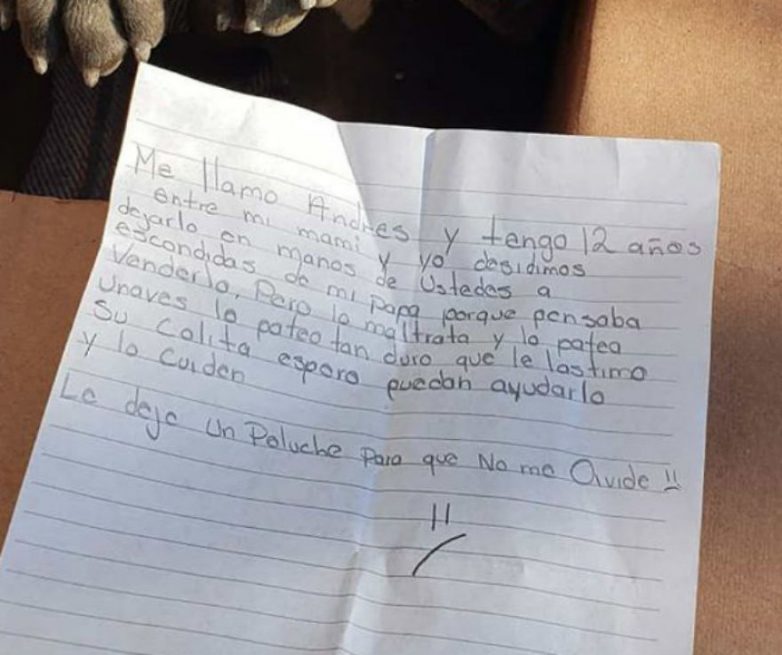 Me llamo Andres y tengo 12 años
entre mi mami y yo desidimos
dejarlo en manos de Ustedes a
escondidas de mi papa porque pensaba
Venderlo, Pero lo maltrata y lo patea
unaves lo pateo tan duro que le lastimo
su colita espero puedan ayudarlo
y lo cuiden
Le dejo un Peluche Para que No me Olvide !!